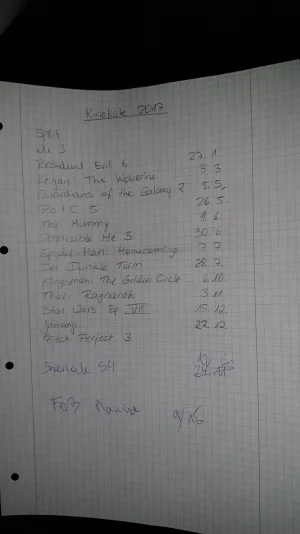 Kinoliste 2017
Split
xXx 3
Resident Evil 6 27.1.
Logan: The Wolverine 3.3.
Guardians of the Galaxy 2 5.5.
PotC 5 26.5.
The Mummy 9.6.
Despicable Me 3 30.6.
Spider-Man: Homecoming 7.7.
Der Dunkle Turm 28.7.
Kingsman: The Golden Circle 6.10.
Thor: Ragnarok 3.11
Star Wars Ep VIII 15.12.
Jumanji 22.12.
Pitch Perfect 3
Sherlock S4
FOB